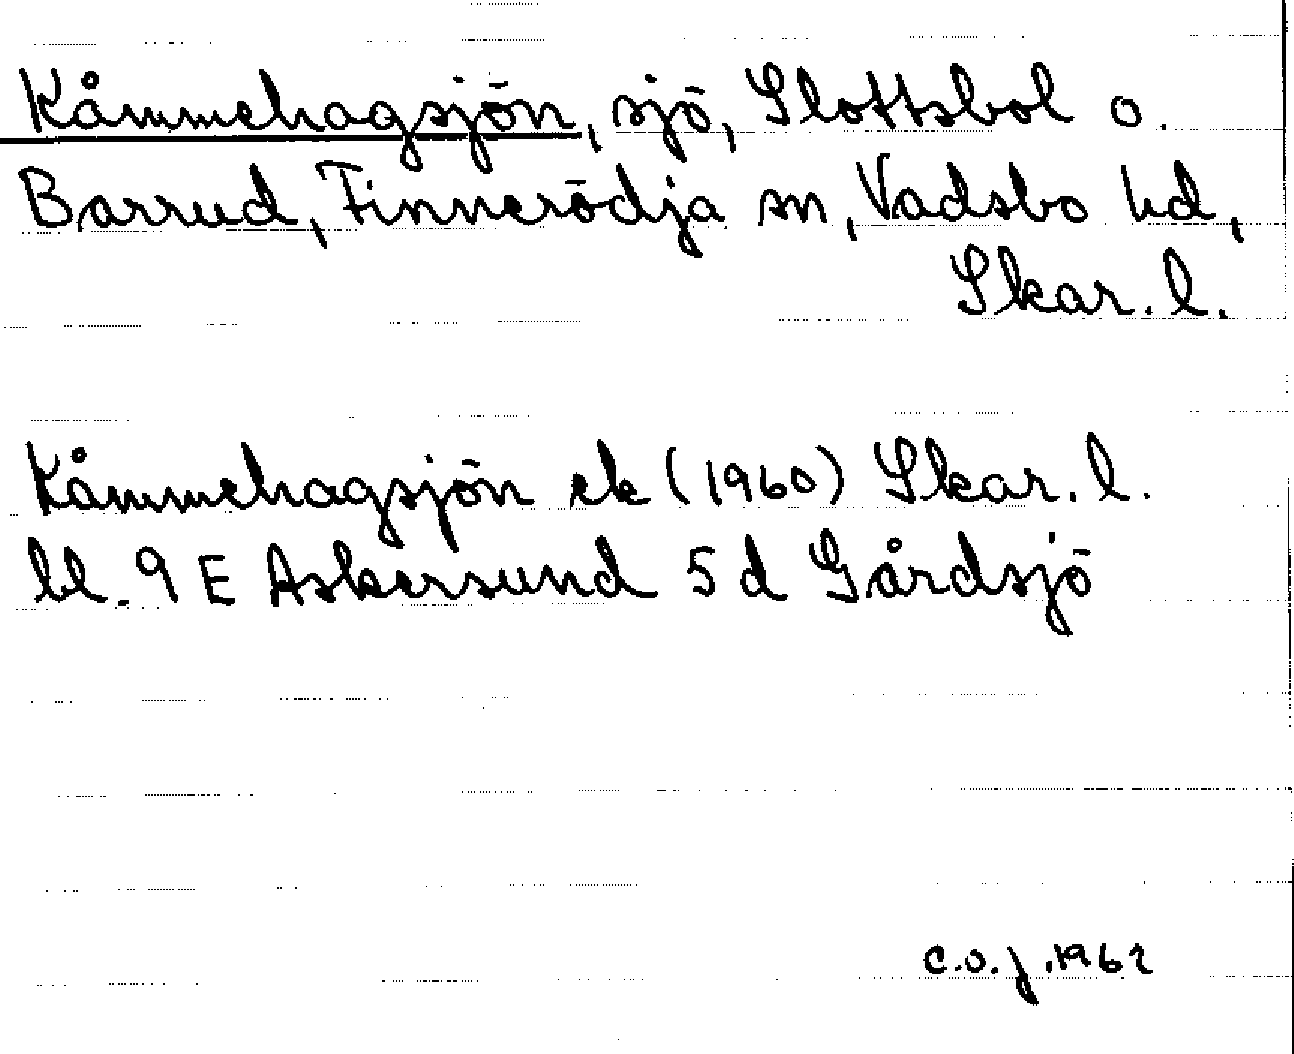 Kåmmehagsjön, sjö, Slottsbol o.
Barrud, Finnerödja sn, Vadsbo hd,
Skar. l.
Kåmmehagsjön ek (1960) Skar. l.
bl. 9 E Askersund 5 d Gårdsjö
C.O.J. 1962